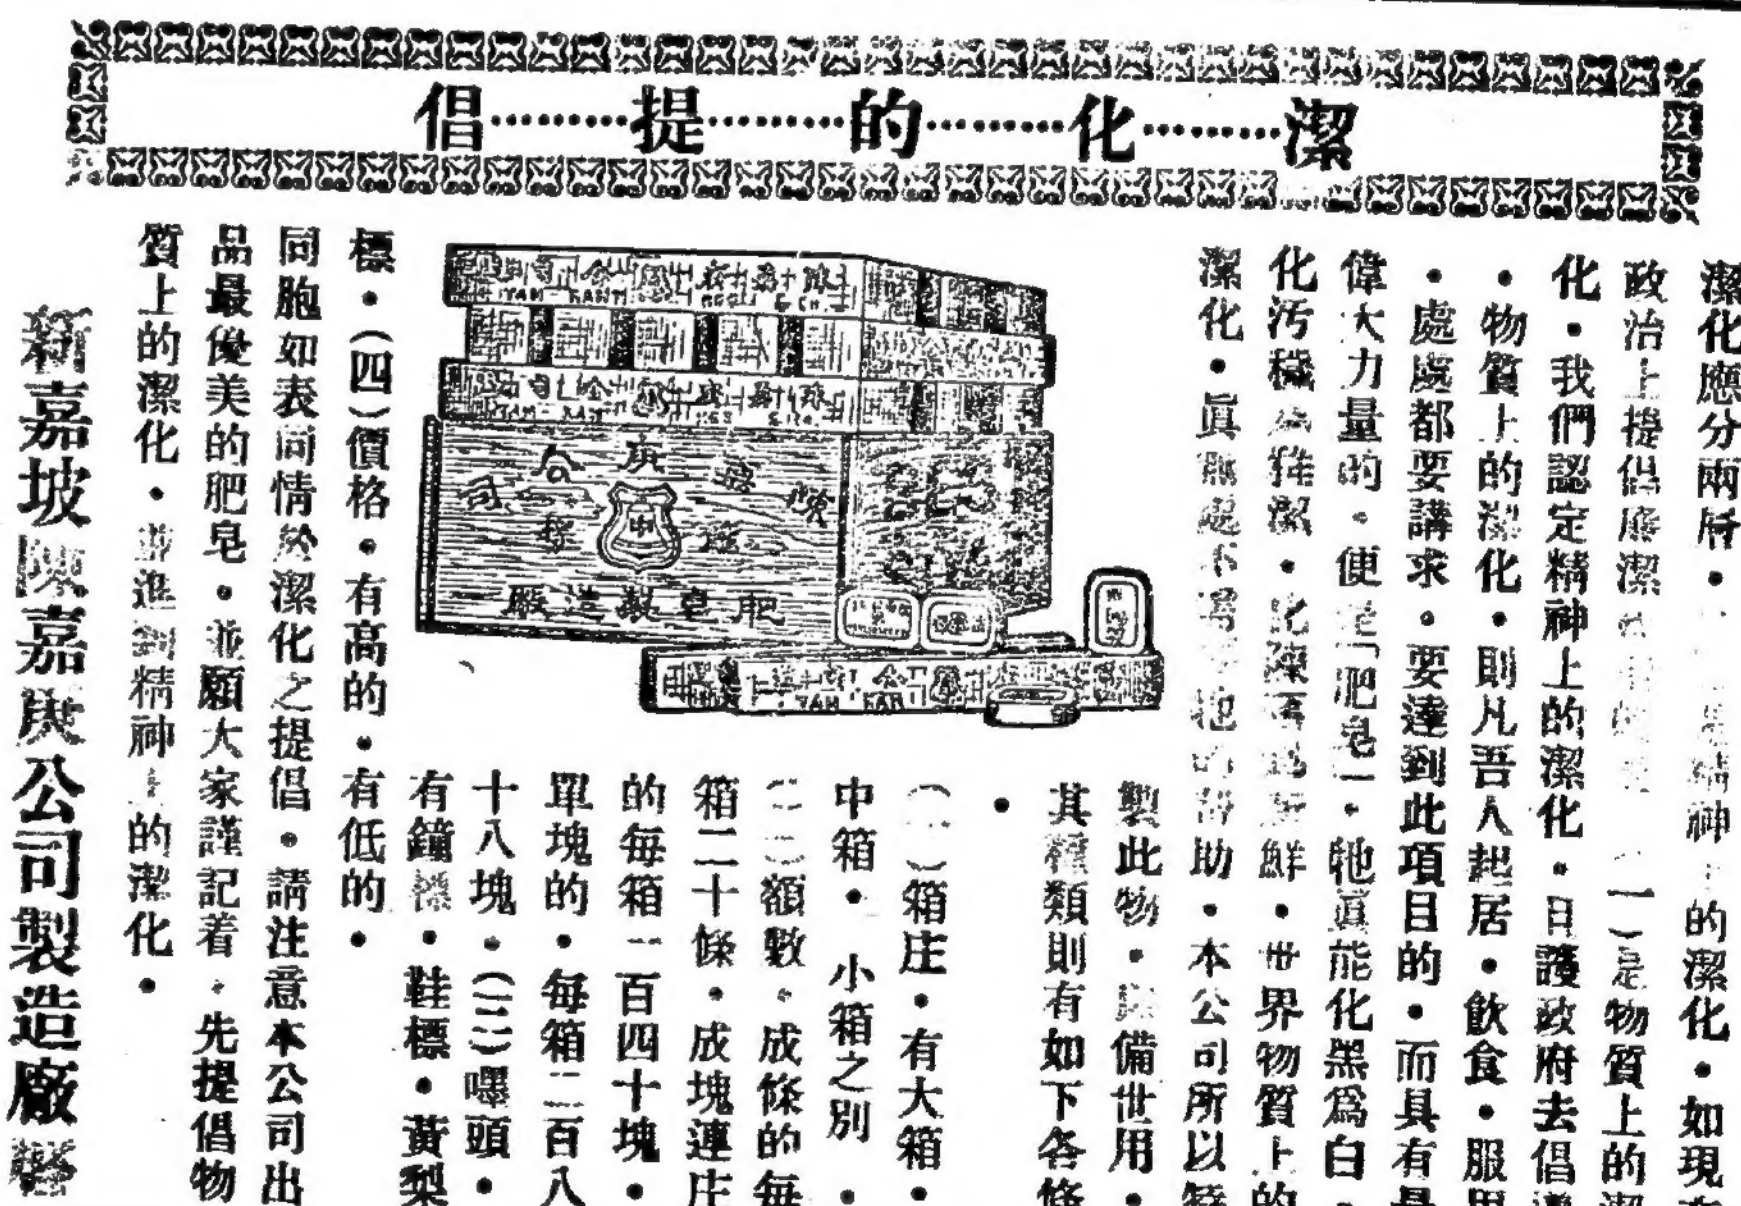 潔………化………的………提………倡
潔化應分兩層・精神上的潔化・如現在
政治上提倡廉潔 (一)是物質上的潔
化・我們認定精神上的潔化・目護政府去倡
・物質上的潔化・則凡吾人起居・飲食・服用
・處處都要講求。要達到此項目的・而具有最
偉大力量的。便是「肥皂」・牠眞能化黑爲白・
化汚穢爲 潔・化陳腐爲新鮮・世界物質上的
潔化・眞無處不需要牠的帮助・本公司所以特
製此物・以備世用・
其種類則有如下各條
・
(一)箱庄・有大箱・
中箱・小箱之別・
(二)額數・成條的每
箱二十條・成塊連庄
的每箱一百四十塊・
單塊的・每箱二百八
十八塊・(三)嘜頭・
有鐘標・鞋標・黃梨
標・(四)價格・有高的・有低的・
同胞如表同情於潔化之提倡・請注意本公司出
品最優美的肥皂・並願大家謹記着・先提倡物
質上的潔化・並進到精神上的潔化・
新嘉坡陳嘉庚公司製造廠
陳嘉庚公司
鐘標
肥皂製造廠
TAN KAH